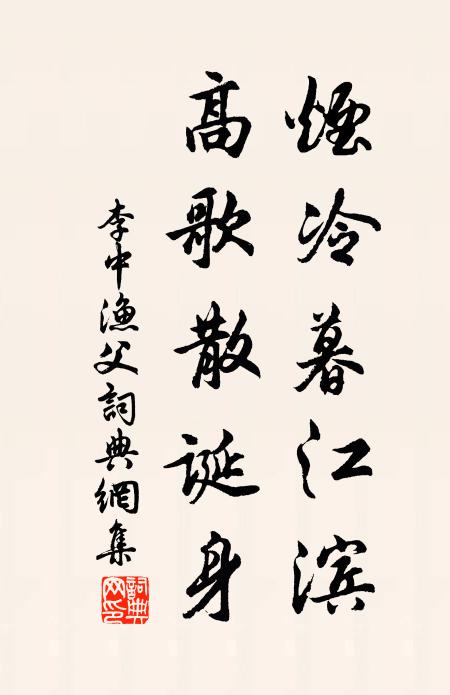 煙冷暮江滨
高歌散誕身
李中漁父詞典網集
詞典网印